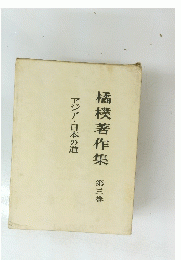 橘樸著作集 第三巻
アジア・日本の道